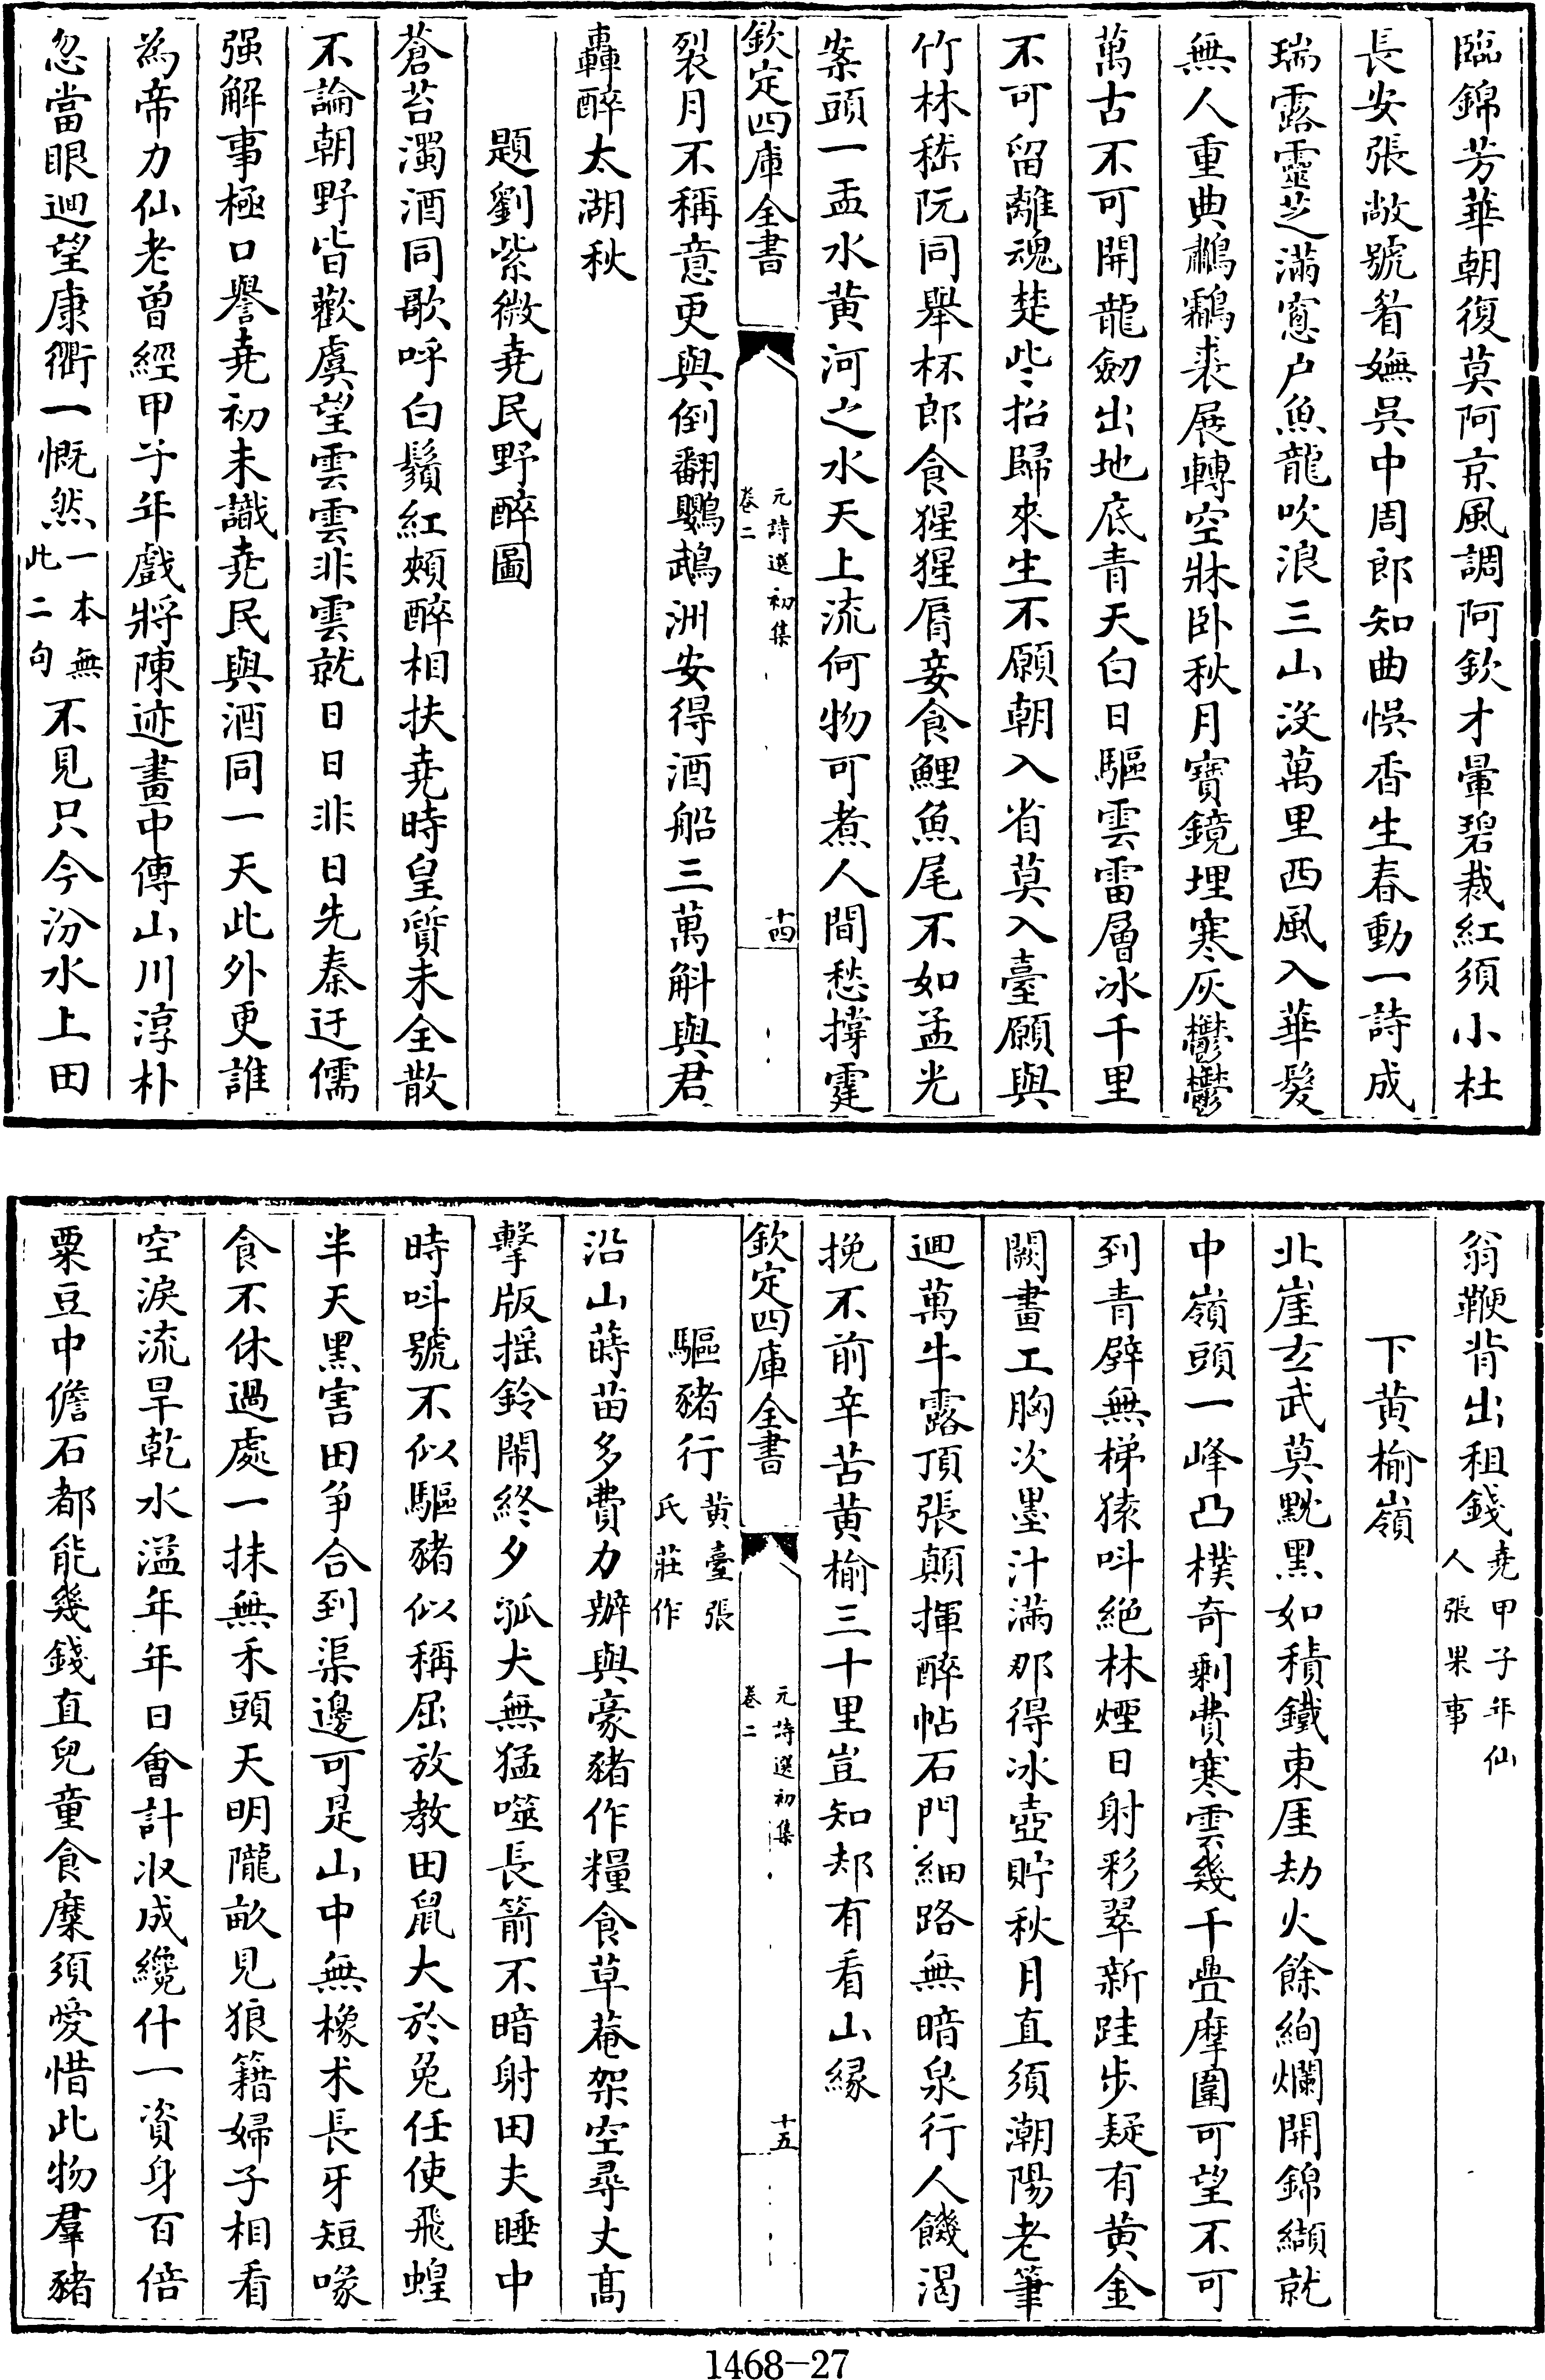 臨錦芳華朝復莫阿京風調阿欽才暈碧裁紅須小杜
長安張敞號眉嫵吳中周郎知曲悞香生春動一詩成
瑞露靈芝滿窻户魚龍吹浪三山沒萬里西風入華髮
無人重典鷫鸘裘展轉空牀卧秋月寶鏡埋寒灰鬱鬱
萬古不可開龍劒出地底青天白日驅雲雷層冰千里
不可留離魂楚些招歸來生不願朝入省莫入臺願與
竹林嵇阮同舉杯郎食猩猩脣妾食鯉魚尾不如孟光
案頭一盂水黄河之水天上流何物可煮人間愁撐霆
欽定四庫全書
元詩選初集
卷二
十四
裂月不稱意更與倒翻鸚鵡洲安得酒船三萬斛與君
轟醉太湖秋
題劉紫微堯民野醉圖
蒼苔濁酒同歌呼白鬚紅頰醉相扶堯時皇質未全散
不論朝野皆歡虞望雲雲非雲就日日非日先秦迂儒
强解事極口譽堯初未識堯民與酒同一天此外更誰
為帝力仙老曽經甲子年戲將陳迹畫中傳山川淳朴
忽當眼迴望康衢一慨然一本無此二句不見只今汾水上田
翁鞭背出租錢堯甲子年仙人張果事
下黄榆嶺
北崖玄武莫黙黑如積鐵東厓劫火餘絢爛開錦纈就
中嶺頭一峰凸樸奇剩費寒雲幾千疊摩圍可望不可
到青壁無梯猿叫絶林煙日射彩翠新跬步疑有黄金
闕畫工胸次墨汁滿那得冰壺貯秋月直須潮陽老筆
迴萬牛露頂張顛揮醉帖石門細路無暗泉行人饑渴
挽不前辛苦黄榆三十里豈知却有看山緣
欽定四庫全書
元詩選初集
卷二
十五
驅豬行黄臺張氏莊作
沿山蒔苗多費力辦與豪豬作糧食草菴架空尋丈高
擊版摇鈴閙終夕孤犬無猛噬長箭不暗射田夫睡中
時叫號不似驅豬似稱屈放教田鼠大於兔任使飛蝗
半天黒害田爭合到渠邊可是山中無橡朮長牙短喙
食不休過處一抹無禾頭天明隴畝見狼籍婦子相看
空淚流旱乾水溢年年日會計収成纔什一資身百倍
粟豆中儋石都能幾錢直兒童食糜須愛惜此物羣豬
1468-27